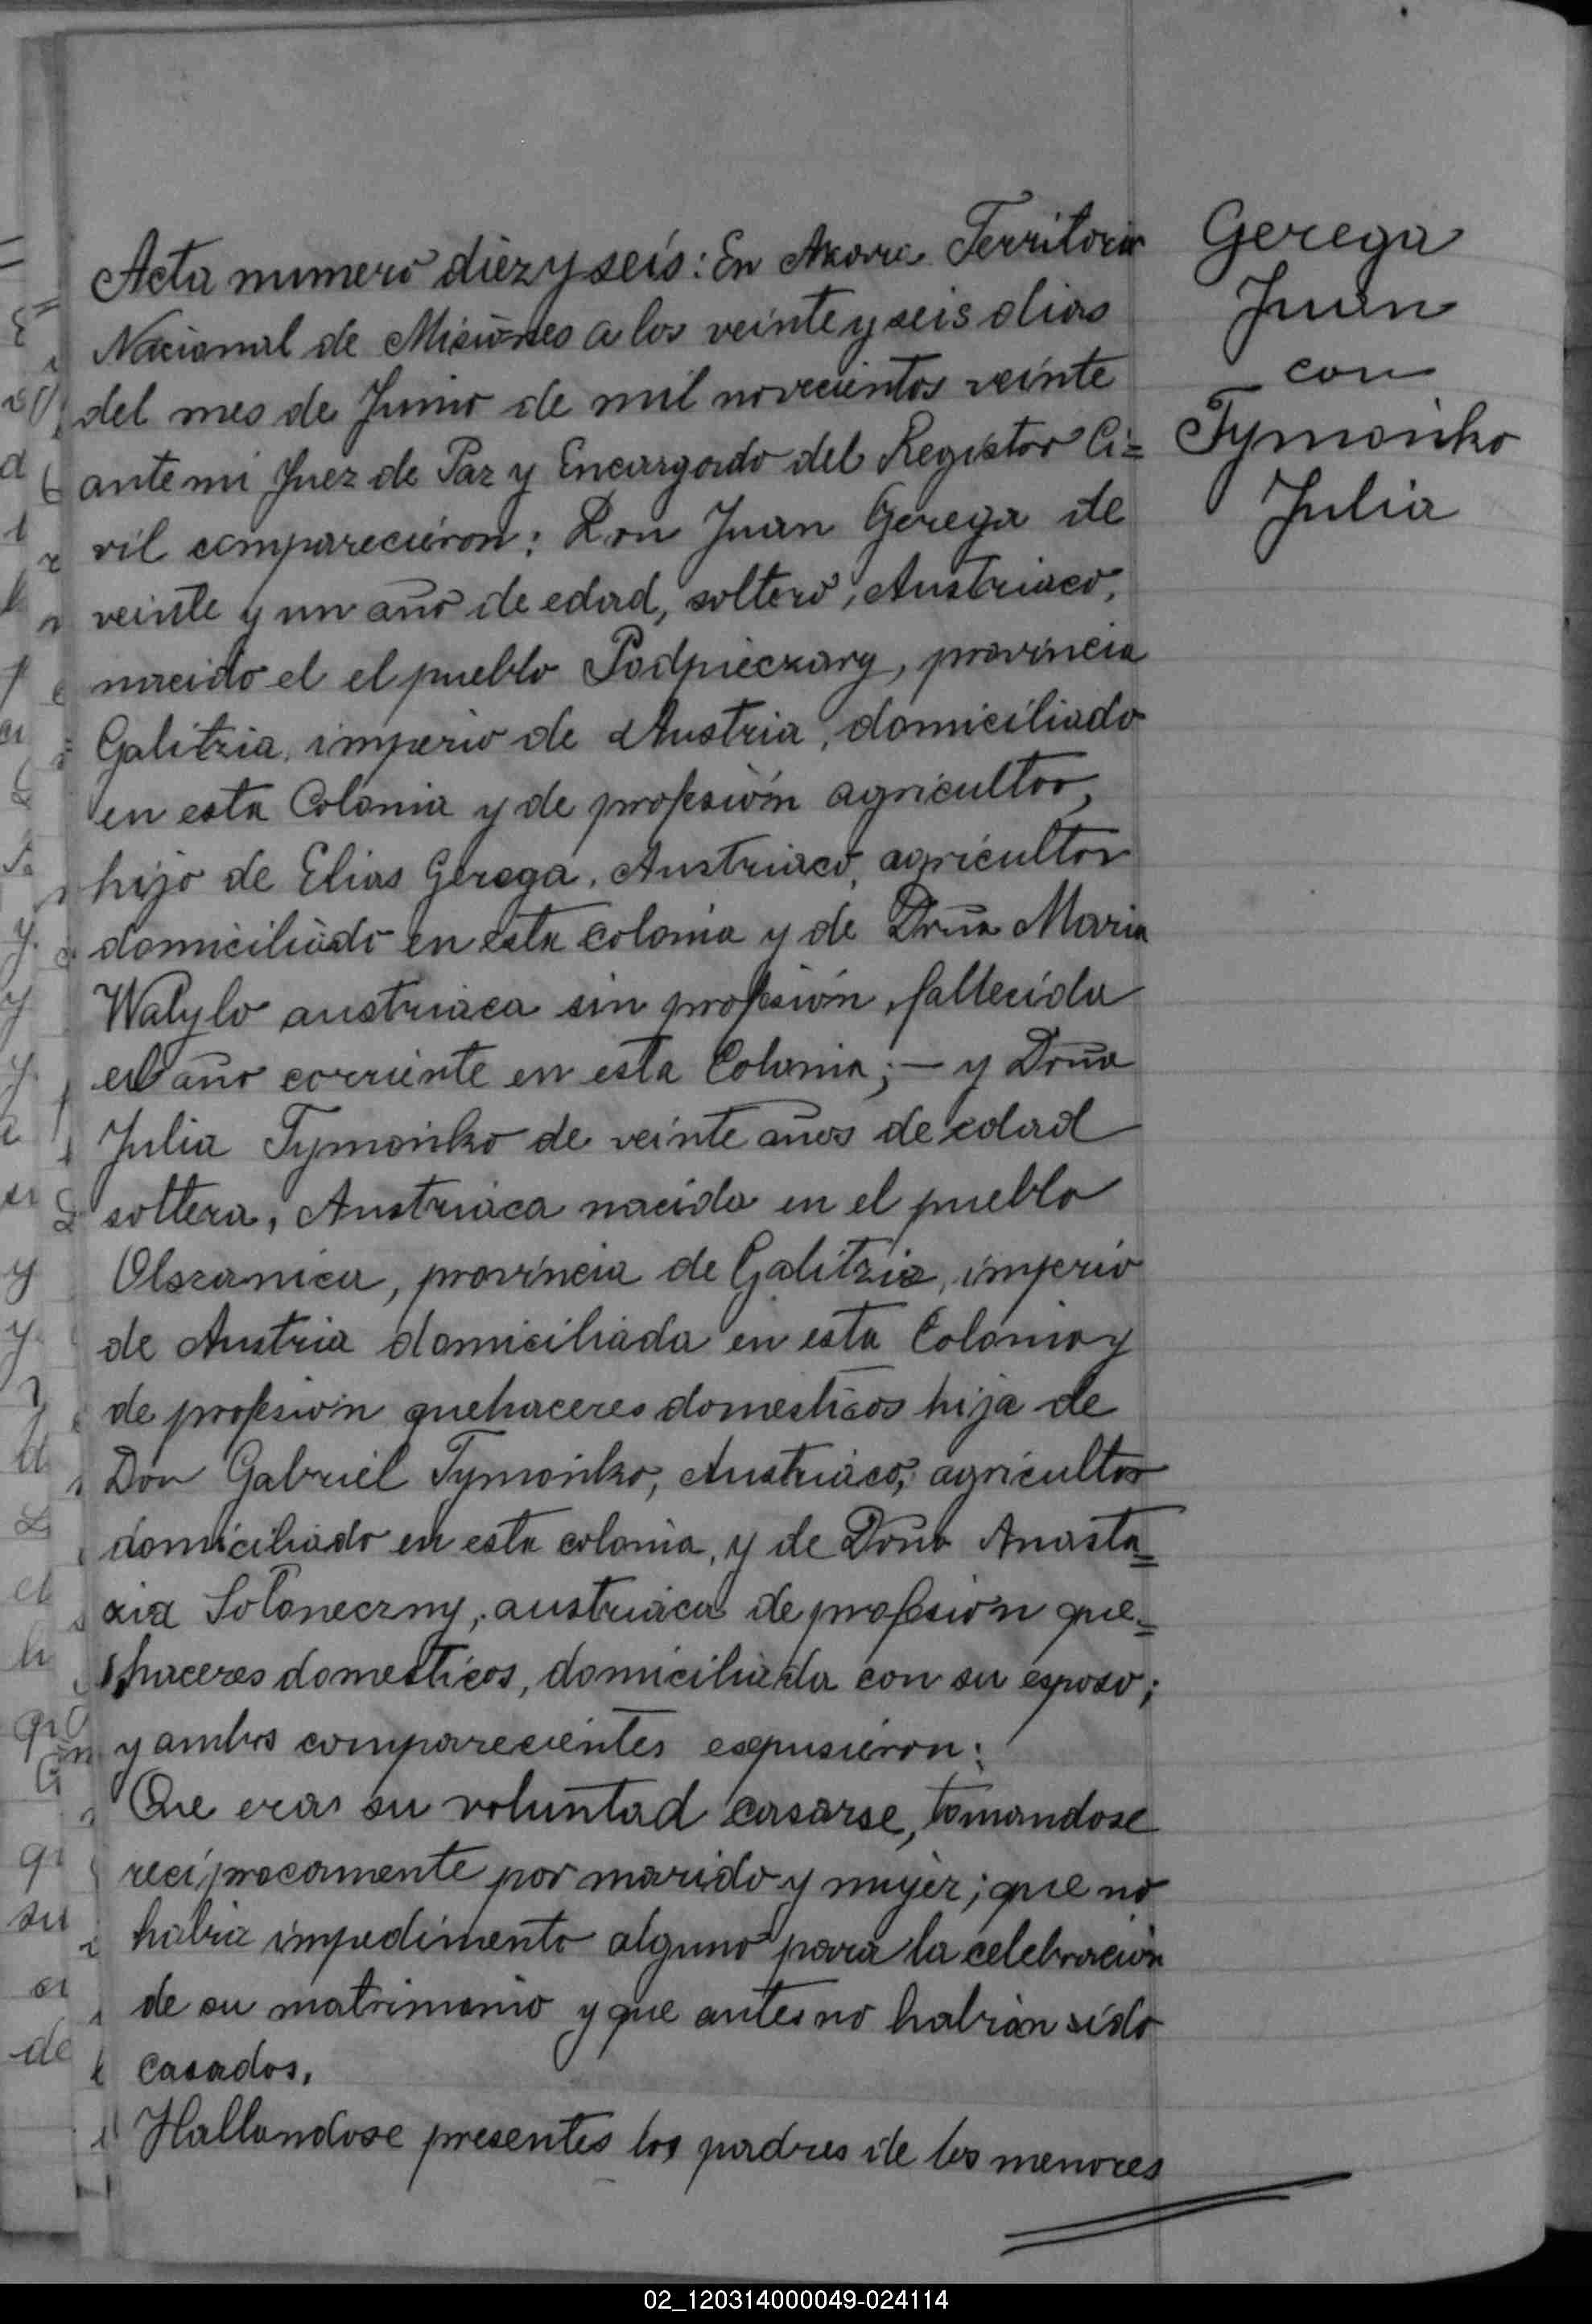 Acta numero diez y seis: En Azara Territorio
Nacional de Misiones a los veinte y seis dias
del mes de Junio de mil novecientos veinte
ante mi Juez de Paz y Encargado del Registor Ci=
vil comparecieron: Don Juan Gerega de
veinte y un año de edad, soltero, Austriaco,
nacido el el pueblo Podpieczary, provincia
Galitzia, imperio de Austria, domiciliado
en esta Colonia y de profesión agricultor,
hijo de Elias Gerega, Austriaco, agricultor
domiciliado en esta colonia y de Doña Maria
Watylo austriaca sin profesión, fallecida
el año corriente en esta Colonia; — y Doña
Julia Tymońko de veinte años de edad
soltera, Austriaca nacida en el pueblo
Olszanica, provincia de Galitzia, imperio
de Austria domiciliada en esta Colonia y
de profesión quehaceres domesticos hija de
Don Gabriel Tymońko, Austriaco, agricultor
domiciliado en esta colonia, y de Doña Anasta=
xia Soloneczny, austriaca de profesión que=
haceres domesticos, domiciliada con su esposo;
y ambos comparecientes expusieron:
Que era su voluntad casarse, tomandose
reciprocamente por marido y mujer; que no
habia impedimento alguno para la celebración
de su matrimonio y que antes no habian sido
casados.
Hallandose presentes los padres de los menores
Gerega
Juan
con
Tymońko
Julia
02_120314000049-024114